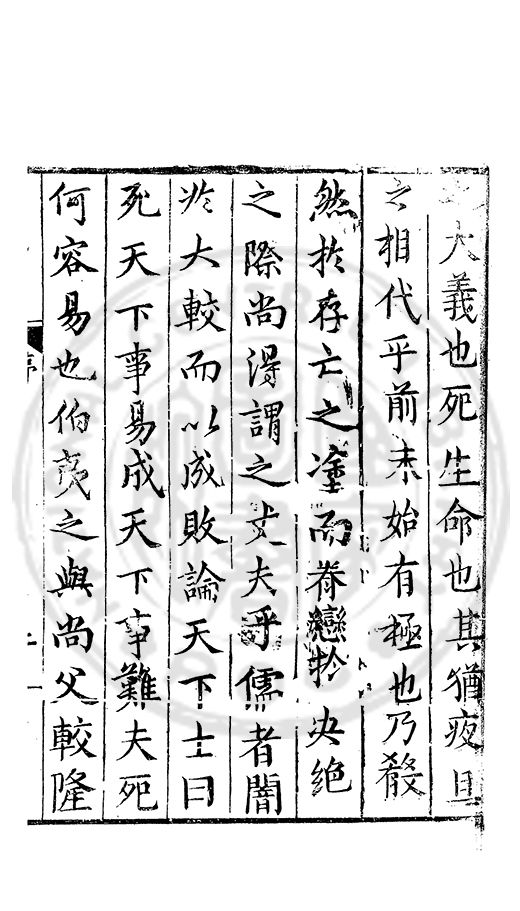 大義也死生命也其猶夜旦
之相代乎前未始有極也乃殽
然於存亡之塗而眷戀於決絶
之際尚得謂之丈夫乎儒者闇
於大較而以成敗論天下士曰
死天下事易成天下事難夫死
何容易也伯夷之與尚父較隆